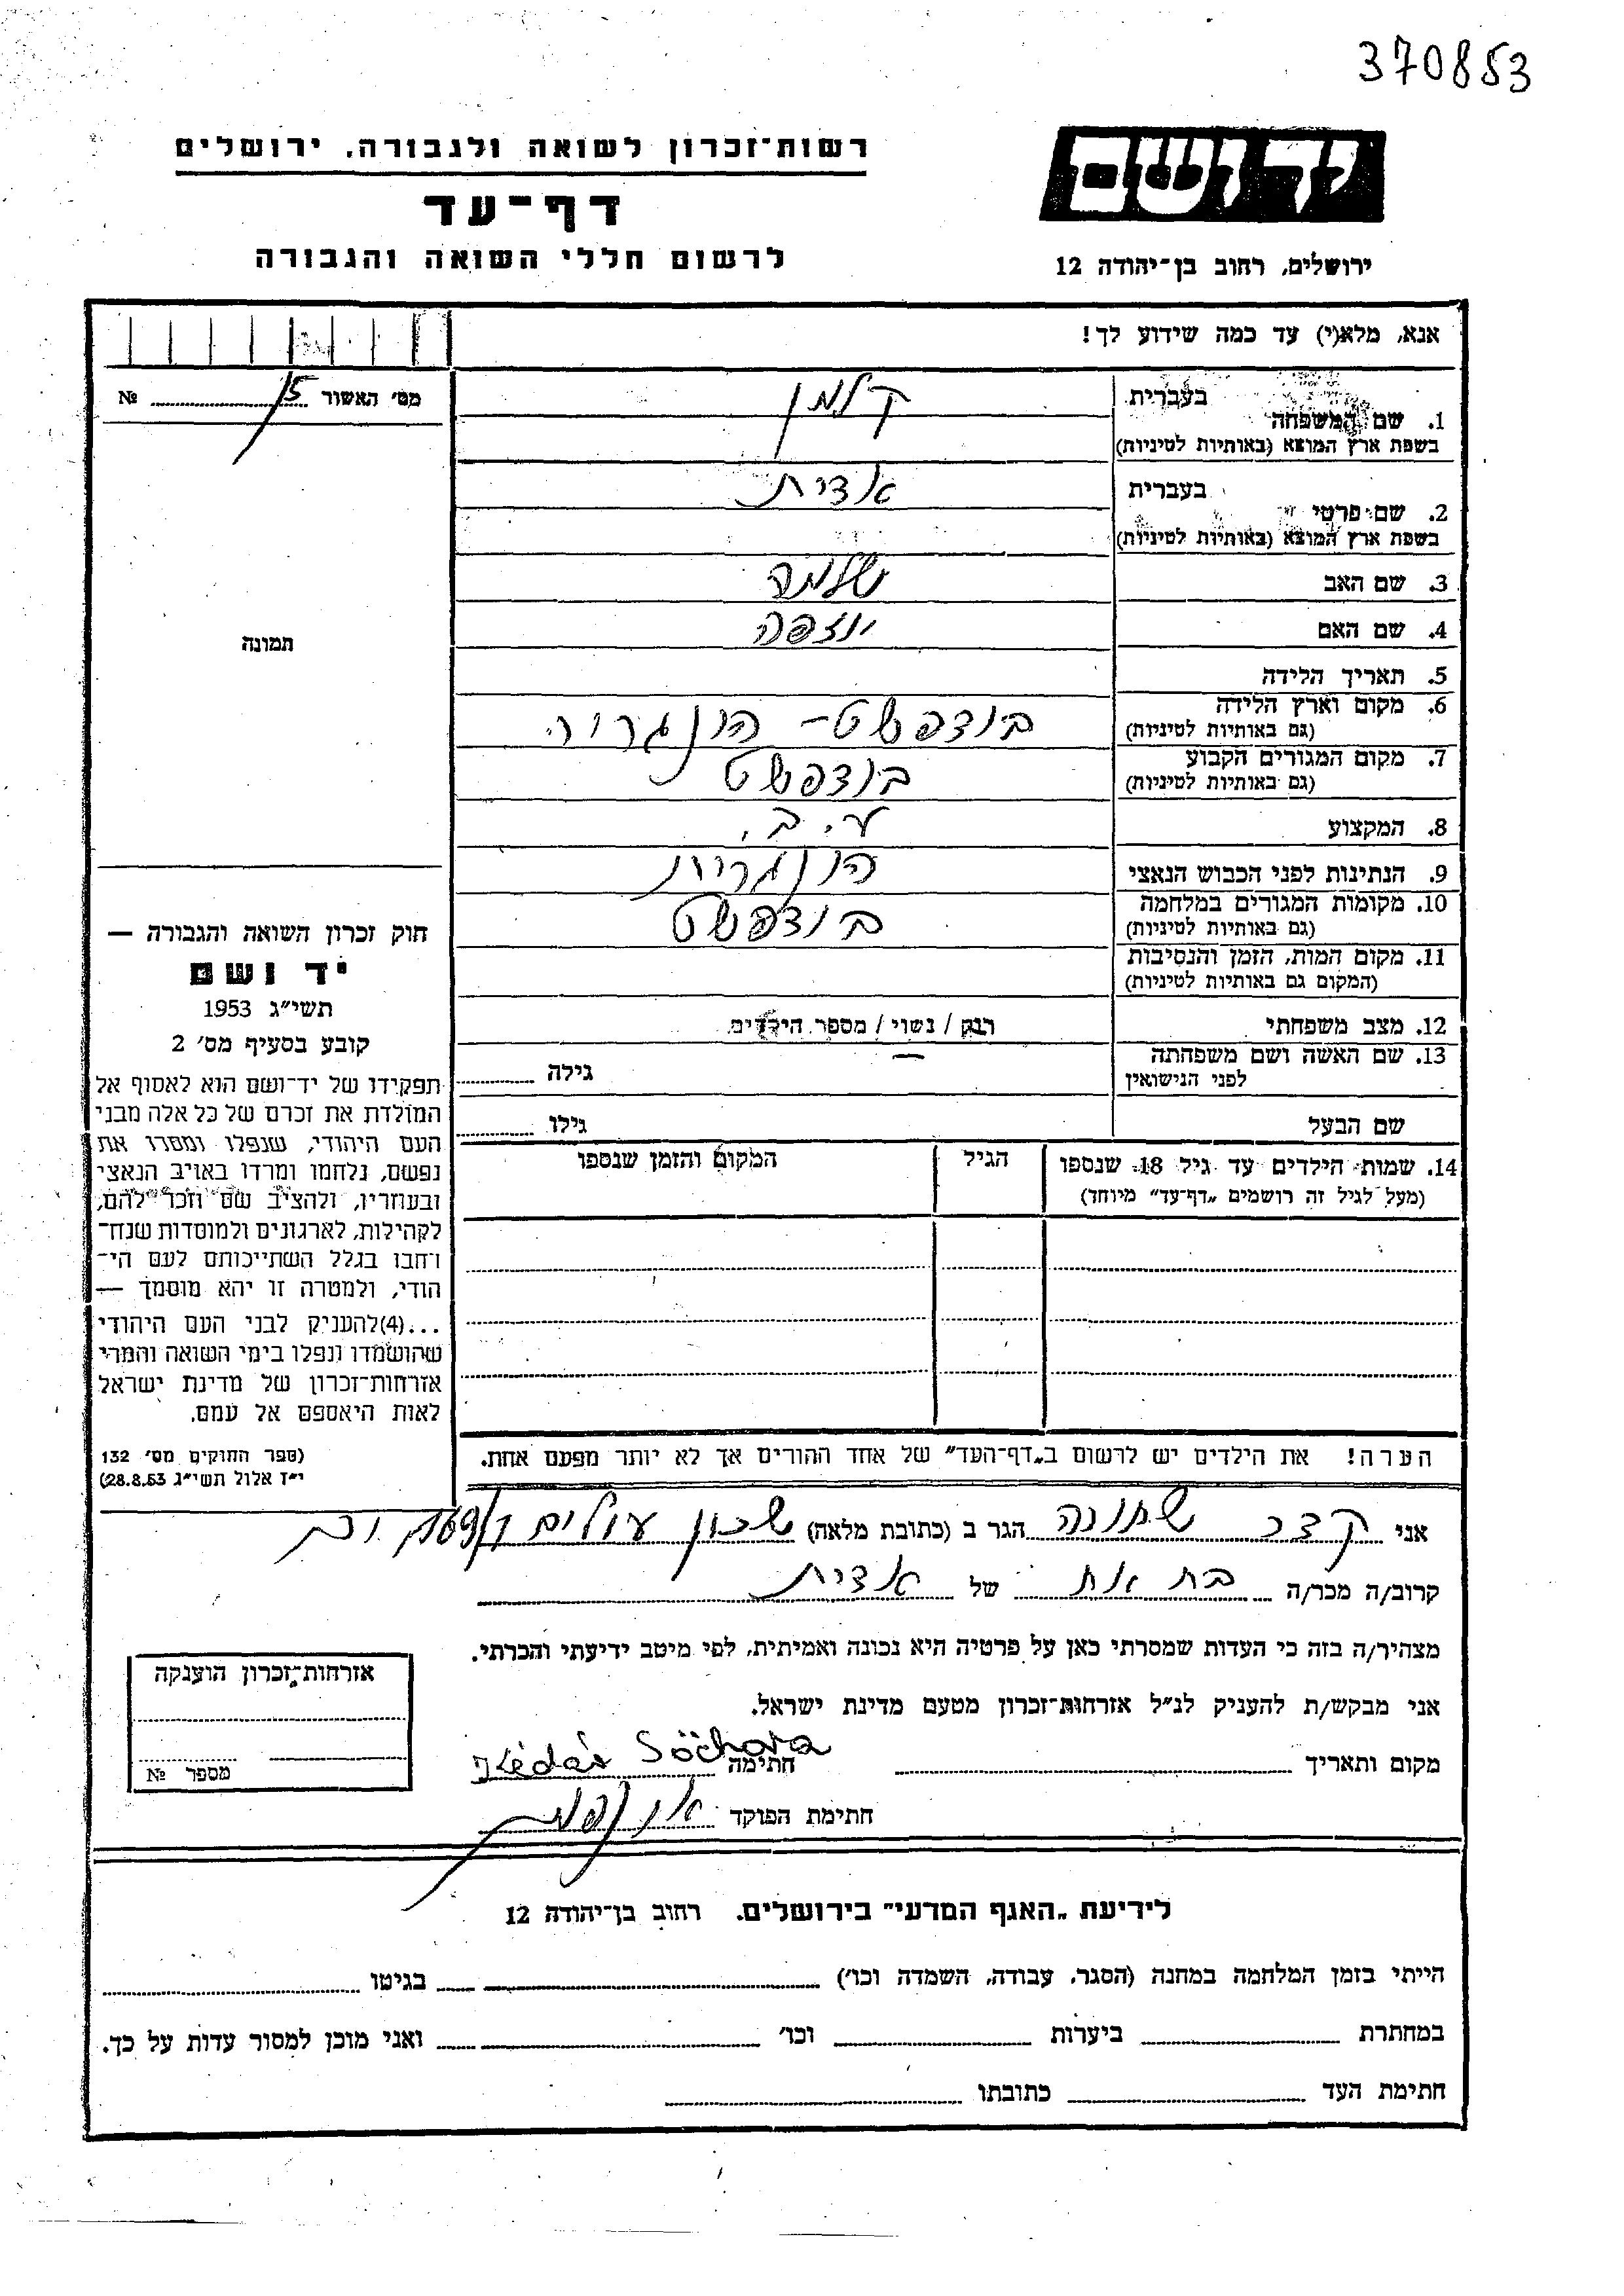 370853
רשות־זכרון לשואה ולגבורה, ירושלים
יד ושם
דף־עד
לרשום חללי השואה והגבורה
ירושלים, רחוב בן־יהודה 12
אנא, מלא(י) עד כמה שידוע לך!
מס׳ האשור 15 №
בעברית קלמן
1. שם המשפחה
בשפת ארץ המוצא (באותיות לטיניות)
בעברית אדית
2. שם פרטי
בשפת ארץ המוצא (באותיות לטיניות)
3. שם האב שלמה
4. שם האם יוזפה
תמונה
5. תאריך הלידה
6. מקום וארץ הלידה בודפשט - הונגריה
(גם באותיות לטיניות)
7. מקום המגורים הקבוע בודפשט
(גם באותיות לטיניות)
8. המקצוע ע. ב.
9. הנתינות לפני הכבוש הנאצי הונגרית
10. מקומות המגורים במלחמה בודפשט
(גם באותיות לטיניות)
11. מקום המות, הזמן והנסיבות
(המקום גם באותיות לטיניות)
12. מצב משפחתי רווק / נשוי / מספר הילדים
13. שם האשה ושם משפחתה
לפני הנישואין גילה
שם הבעל גילו
14. שמות הילדים עד גיל 18 שנספו הגיל המקום והזמן שנספו
(מעל לגיל זה רושמים „דף־עד״ מיוחד)
חוק זכרון השואה והגבורה —
יד ושם
תשי״ג 1953
קובע בסעיף מס׳ 2
תפקידו של יד־ושם הוא לאסוף אל
המולדת את זכרם של כל אלה מבני
העם היהודי, שנפלו ומסרו את
נפשם, נלחמו ומרדו באויב הנאצי
ובעוזריו, ולהציב שם וזכר להם,
לקהילות, לארגונים ולמוסדות שנח־
רחבו בגלל השתייכותם לעם הי־
הודי, ולמטרה זו יהא מוסמך —
...(4)להעניק לבני העם היהודי
שהושמדו ונפלו בימי השואה והמרי
אזרחות־זכרון של מדינת ישראל
לאות היאספם אל עמם.
(ספר החוקים מס׳ 132
י״ז אלול תשי״ג 28.8.53)
הערה! את הילדים יש לרשום ב„דף־העד״ של אחד ההורים אך לא יותר מפעם אחת.
אני קדר שושנה הגר ב (כתובת מלאה) שכון עולים
קרוב/ה מכר/ה בת אח של אדית
מצהיר/ה בזה כי העדות שמסרתי כאן על פרטיה היא נכונה ואמיתית, לפי מיטב ידיעתי והכרתי.
אני מבקש/ת להעניק לנ״ל אזרחות־זכרון מטעם מדינת ישראל.
מקום ותאריך חתימה Kédár
חתימת הפוקד
אזרחות־זכרון הוענקה
מספר №
לידיעת „האגף המדעי״ בירושלים, רחוב בן־יהודה 12
הייתי בזמן המלחמה במחנה (הסגר, עבודה, השמדה וכו׳) בגיטו
במחתרת ביערות וכו׳ ואני מוכן למסור עדות על כך.
חתימת העד כתובתו